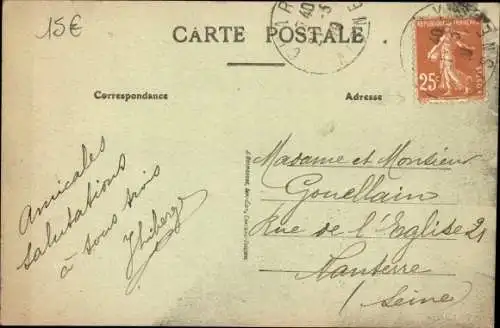 15€
CARTE POSTALE
REPUBLIQUE FRANÇAISE
25c
Correspondance
Adresse
Amicales
salutations
à tous trois
Thiberge
Madame et Monsieur
Gouellain
Rue de l'Eglise 21
Nanterre
(Seine)